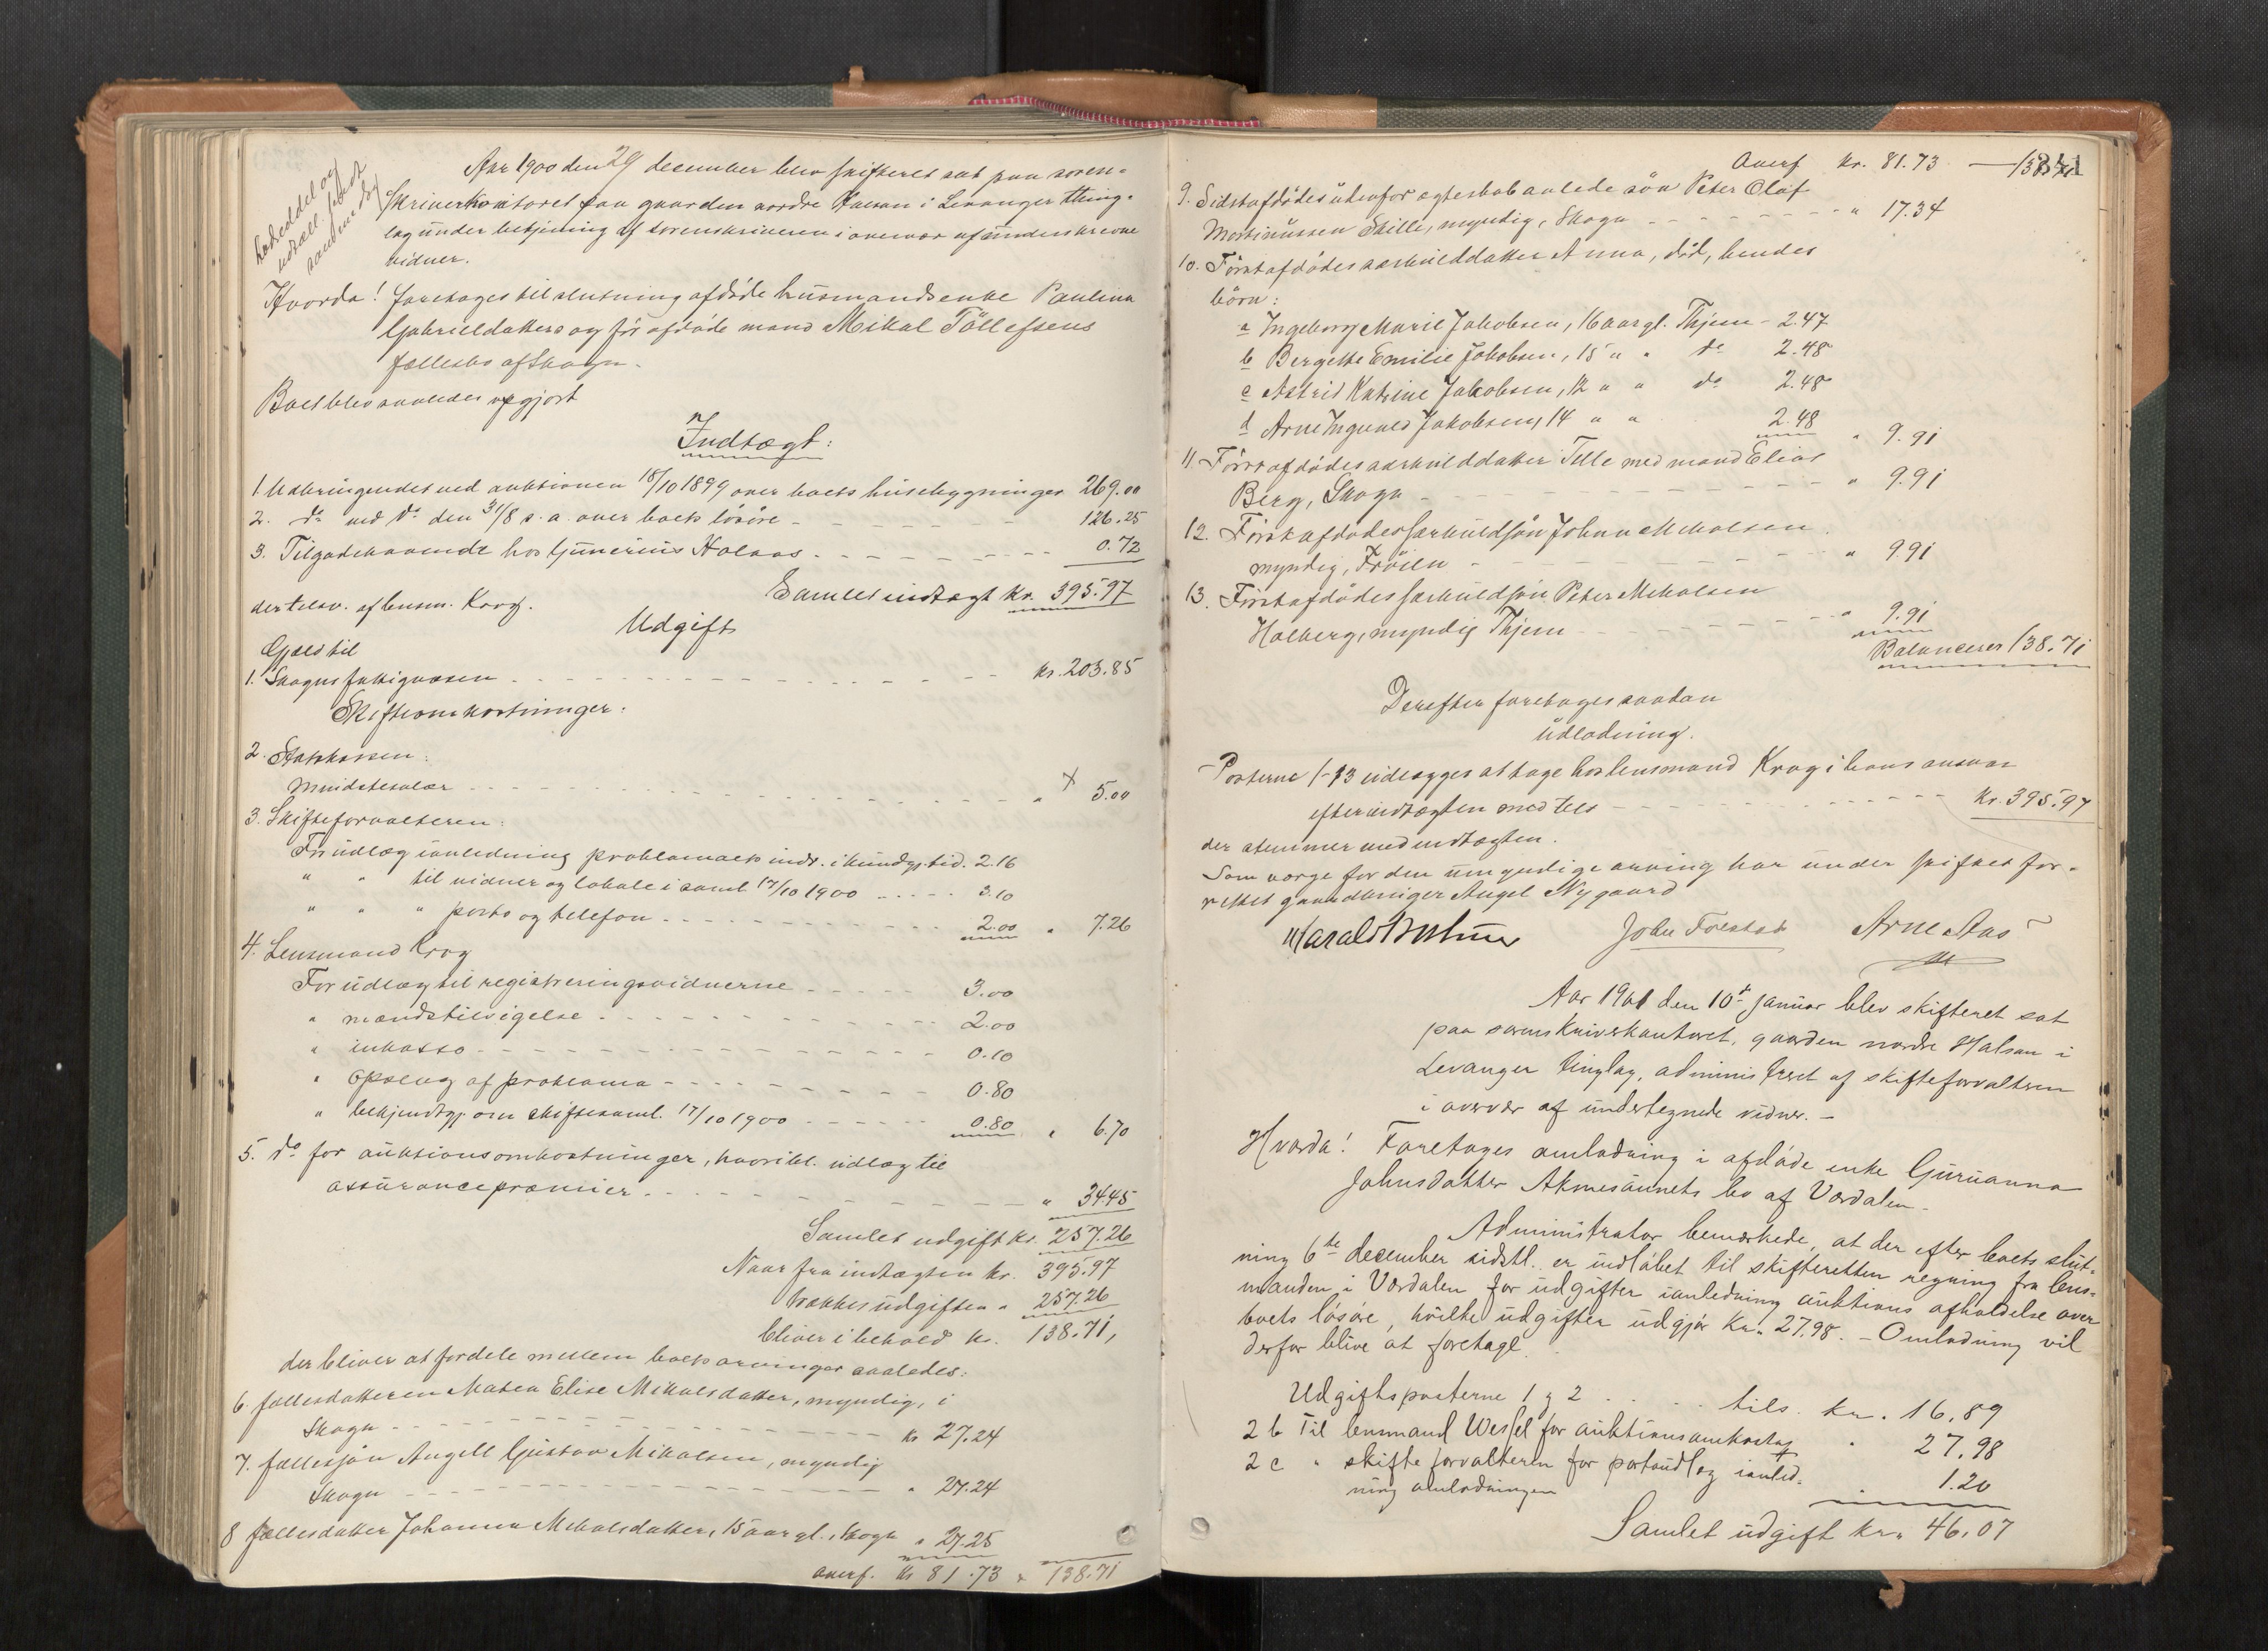 Aar 1900 den 29 december blev skifteret sat paa soren-
skriverkontoret paa gaarden nordre Halsan i Levanger thing-
lag under betjening af sorenskriveren i overvær af underskrevne
vidner.
Hvorda! foretoges til slutning afdøde husmandsenke Paulina
Gabrielsdatters og før afdøde mand Mikal Tøllefsens
fællesbo af Skogn.
Boet blev saaledes opgjort
Indtægt:
1. Udbringendet ved auktionen 18/10 1899 over boets husebygninger 269.00
2. do ved do den 31/8 s.a. over boets løsøre - 126.25
3. Tilgodehavende hos Gunerius Holaas - 0.72
Samlet indtægt kr. 395.97
der tilsv. af lensm. Krog.
Udgift
Gjæld til
1. Skogns fattigvæsen - kr. 203.85
Skifteomkostninger:
2. Statskassen:
Mindstesalær - " 5.00
3. Skifteforvalteren:
For udlæg i anledning proklamaets indr. i kundgj.tid. 2.16
" " til vidner og lokale i saml 17/10 1900 - 3.10
" " " porto og telefon - 2.00 " 7.26
4. Lensmand Krog
For udlæg til registreringsvidnerne - 3.00
" mændstilsigelse - 2.00
" inkasso - 0.10
" opslag af proklama - 0.80
" bekjendtgj. om skiftesaml. 17/10 1900 - 0.80 " 6.70
5. do for auktionsomkostninger, hvori bl. udlæg til
assurancepræmier - " 34.45
Samlet udgift kr. 257.26
Naar fra indtægten kr. 395.97
trækkes udgiften " 257.26
bliver i behold kr. 138.71,
der bliver at fordele mellem boets arvinger saaledes:
6. fællesdatteren Maten Elise Mikalsdatter, myndig, i
Skogn - kr 27.24
7. fællessøn Angell Gustav Mikalsen, myndig
Skogn - " 27.24
8 fællesdatter Johanna Mikalsdatter, 15 aar gl., Skogn " 27.25
overf. kr 81.73 " 138.71
Overf kr. 81.73 - 138.71
9. Sidstafdødes udenfor ægteskab avlede søn Peter Olaf
Martinussen Skille, myndig, Skogn - " 17.34
10. Førstafdødes særkulddatter Anna, død, hendes
børn:
a Ingeborg Marie Jakobsen, 16 aar gl. Thjem - 2.47
b Bergette Emilie Jakobsen, 15 " " do 2.48
c Astrid Katrine Jakobsen, 12 " " do 2.48
d Arne Ingvald Jakobsen, 14 " " 2.48 " 9.91
11. Førstafdødes særkulddatter Tille med mand Elias
Berg, Skogn - " 9.91
12. Førstafdødes særkuldsøn Johan Mikalsen
myndig, Frøien - " 9.91
13. Førstafdødes særkuldsøn Peter Mikalsen
Halberg, myndig Thjem - " 9.91
Balancerer 138.71
Derefter foretoges saadan
udlodning.
Posterne 1-13 udlægges at tage hos lensmand Krog i hans ansvar
efter indtægten med tils - kr. 395.97
der stemmer med indtægten.
Som værge for den umyndige arving har under skiftet for-
rettet gaardbruger Angel Nygaard
John Forstad Arne Aas
Aar 1901 den 10de januar blev skifteret sat
paa sorenskriverkontoret, gaarden nordre Halsan i
Levanger tinglag, administreret af skifteforvalteren
i overvær af undertegnede vidner. -
Hvorda! Foretoges omlodning i afdøde enke Guruanna
Johnsdatter Akmesaunets bo af Værdalen.
Administrator bemærkede, at der efter boets slut-
ning 6te december sidstl. er indløbet til skifteretten regning fra lens-
manden i Værdalen for udgifter i anledning auktions afholdelse over
boets løsøre, hvilke udgifter udgjør kr. 27.98. - Omlodning vil
derfor blive at foretage.
Udgiftsposterne 1 g 2 . . . . tils. kr. 16.89
2 b Til lensmand Wessel for auktionsomkostn " 27.98
2 c " skifteforvalteren for portoudlæg i anled-
ning omlodningen " 1.20
Samlet udgift kr. 46.07